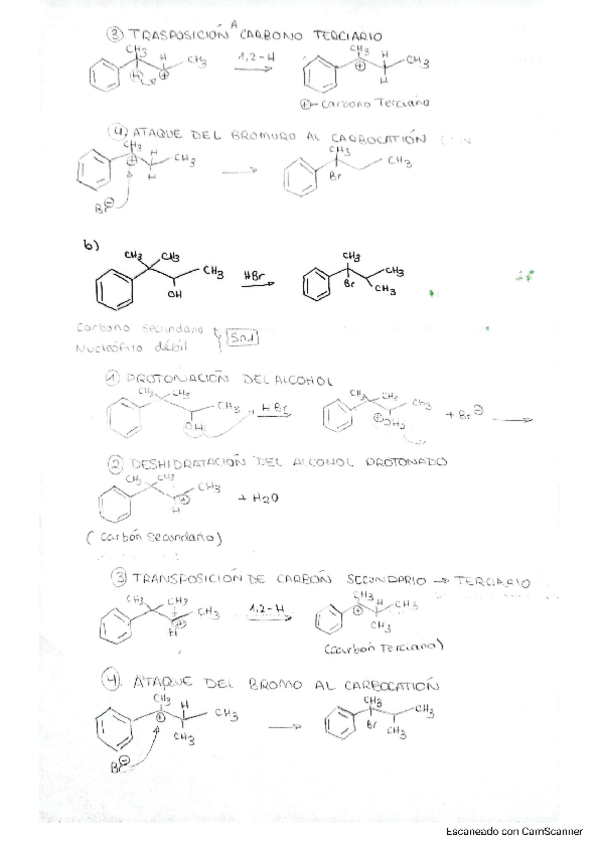 ③ TRASPOSICIÓN A CARBONO TERCIARIO
CH3 H CH3 1,2-H CH3 H CH3
H ⊕ ⊕ H
⊕- Carbono Terciario
④ ATAQUE DEL BROMURO AL CARBOCATIÓN
CH3 H CH3 CH3 CH3
⊕ H Br
Br⊖
b)
CH3 CH3 CH3 HBr CH3 CH3
OH Br CH3
Carbono secundario
Nucleófilo débil
SN1
① PROTONACIÓN DEL ALCOHOL
CH3 CH3 CH3 HBr CH3 CH3 CH3 + Br⊖
OH ⊕OH2
② DESHIDRATACIÓN DEL ALCOHOL PROTONADO
CH3 CH3 CH3 + H2O
H ⊕
(Carbón secundario)
③ TRANSPOSICIÓN DE CARBÓN SECUNDARIO → TERCIARIO
CH3 CH3 CH3 1,2-H CH3 H CH3
H ⊕ ⊕ CH3
(Carbón Terciario)
④. ATAQUE DEL BROMO AL CARBOCATIÓN
CH3 H CH3 CH3 CH3
⊕ CH3 Br CH3
Br⊖
Escaneado con CamScanner